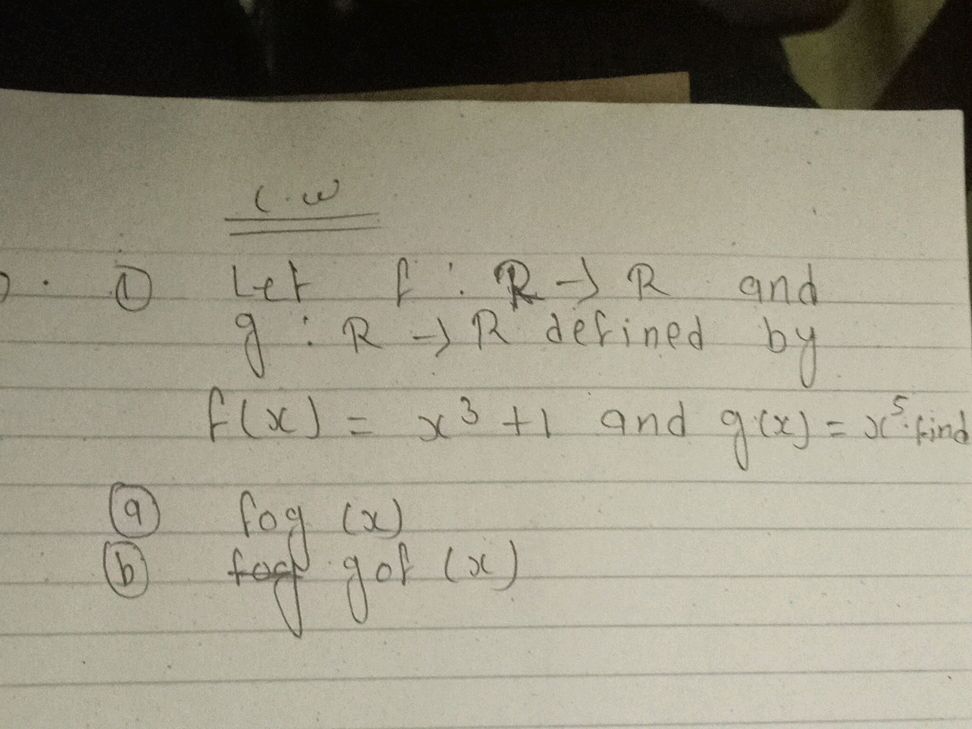 C.W
. ① Let f : R → R and
g : R → R defined by
f(x) = x³ + 1 and g(x) = x⁵. find
ⓐ fog (x)
ⓑ fog gof (x)